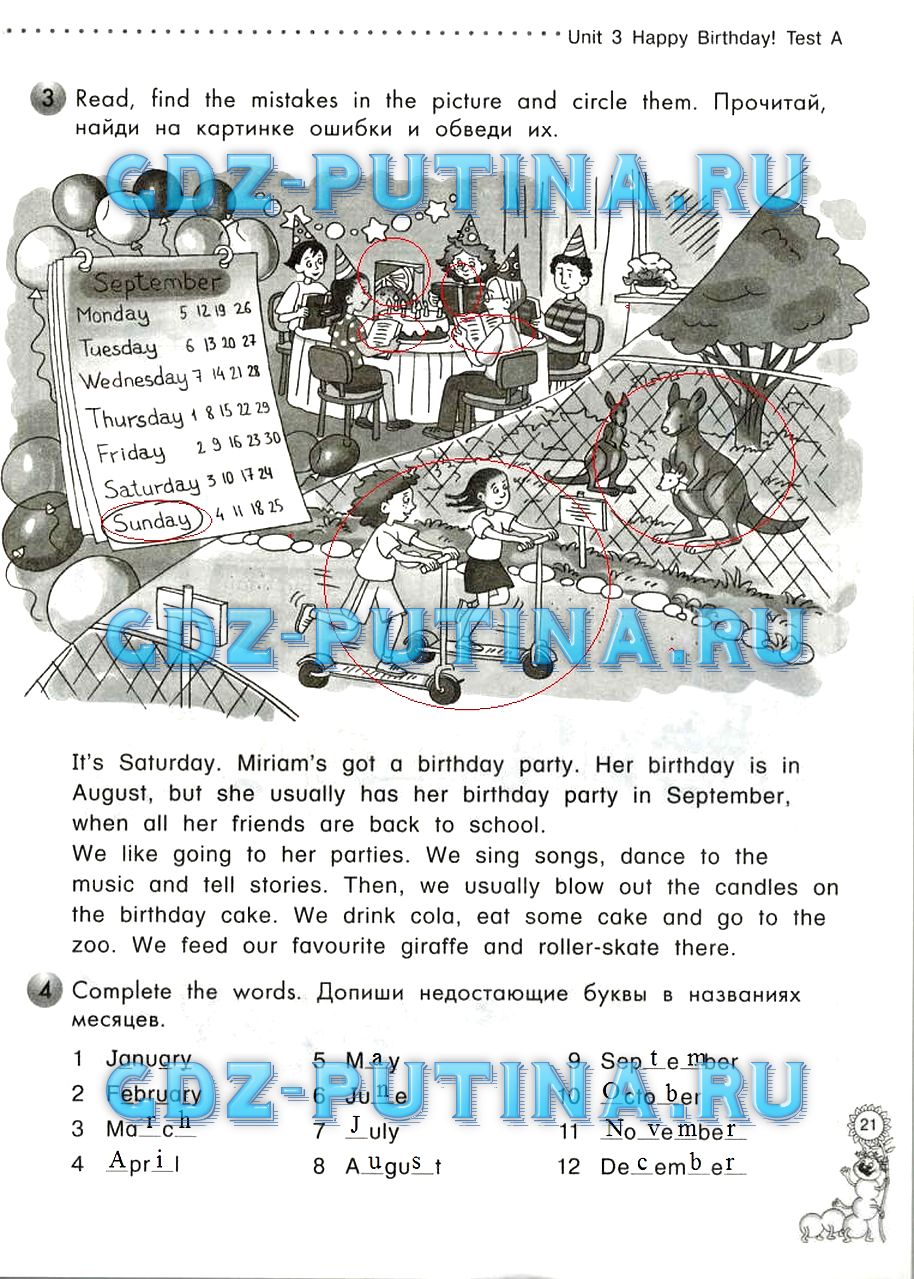 Unit 3 Happy Birthday! Test A
3 Read, find the mistakes in the picture and circle them. Прочитай,
найди на картинке ошибки и обведи их.
GDZ-PUTINA.RU
September
Monday 5 12 19 26
Tuesday 6 13 20 27
Wednesday 7 14 21 28
Thursday 1 8 15 22 29
Friday 2 9 16 23 30
Saturday 3 10 17 24
Sunday 4 11 18 25
GDZ-PUTINA.RU
It's Saturday. Miriam's got a birthday party. Her birthday is in
August, but she usually has her birthday party in September,
when all her friends are back to school.
We like going to her parties. We sing songs, dance to the
music and tell stories. Then, we usually blow out the candles on
the birthday cake. We drink cola, eat some cake and go to the
zoo. We feed our favourite giraffe and roller-skate there.
4 Complete the words. Допиши недостающие буквы в названиях
месяцев.
1 January 5 May 9 September
GDZ-PUTINA.RU
2 February 6 June 10 October
3 March 7 July 11 November
4 April 8 August 12 December
21